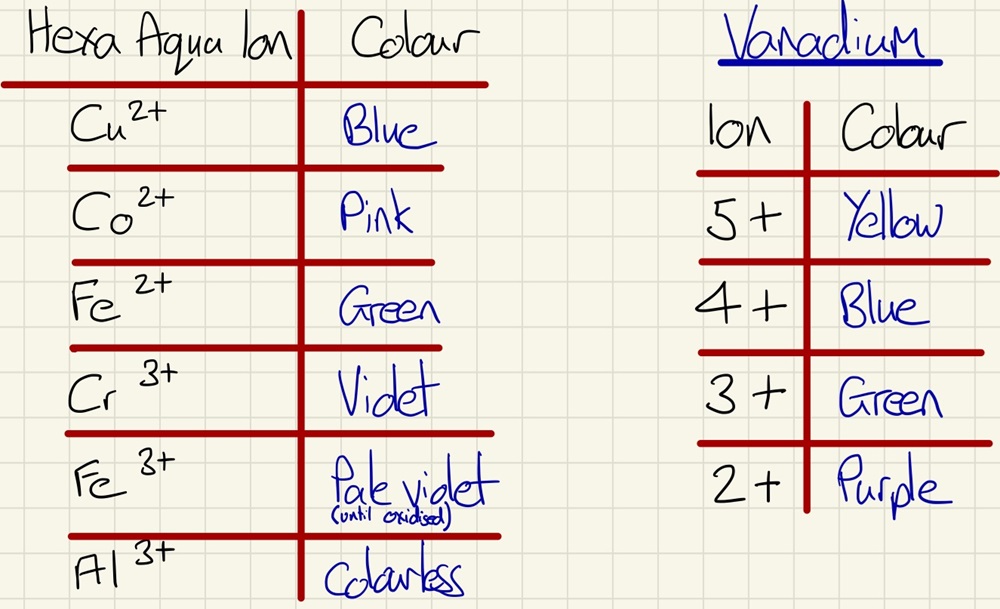 Hexa Aqua Ion Colour
Cu2+ Blue
Co2+ Pink
Fe2+ Green
Cr3+ Violet
Fe3+ Pale violet
(until oxidised)
Al3+ Colourless
Vanadium
Ion Colour
5+ Yellow
4+ Blue
3+ Green
2+ Purple